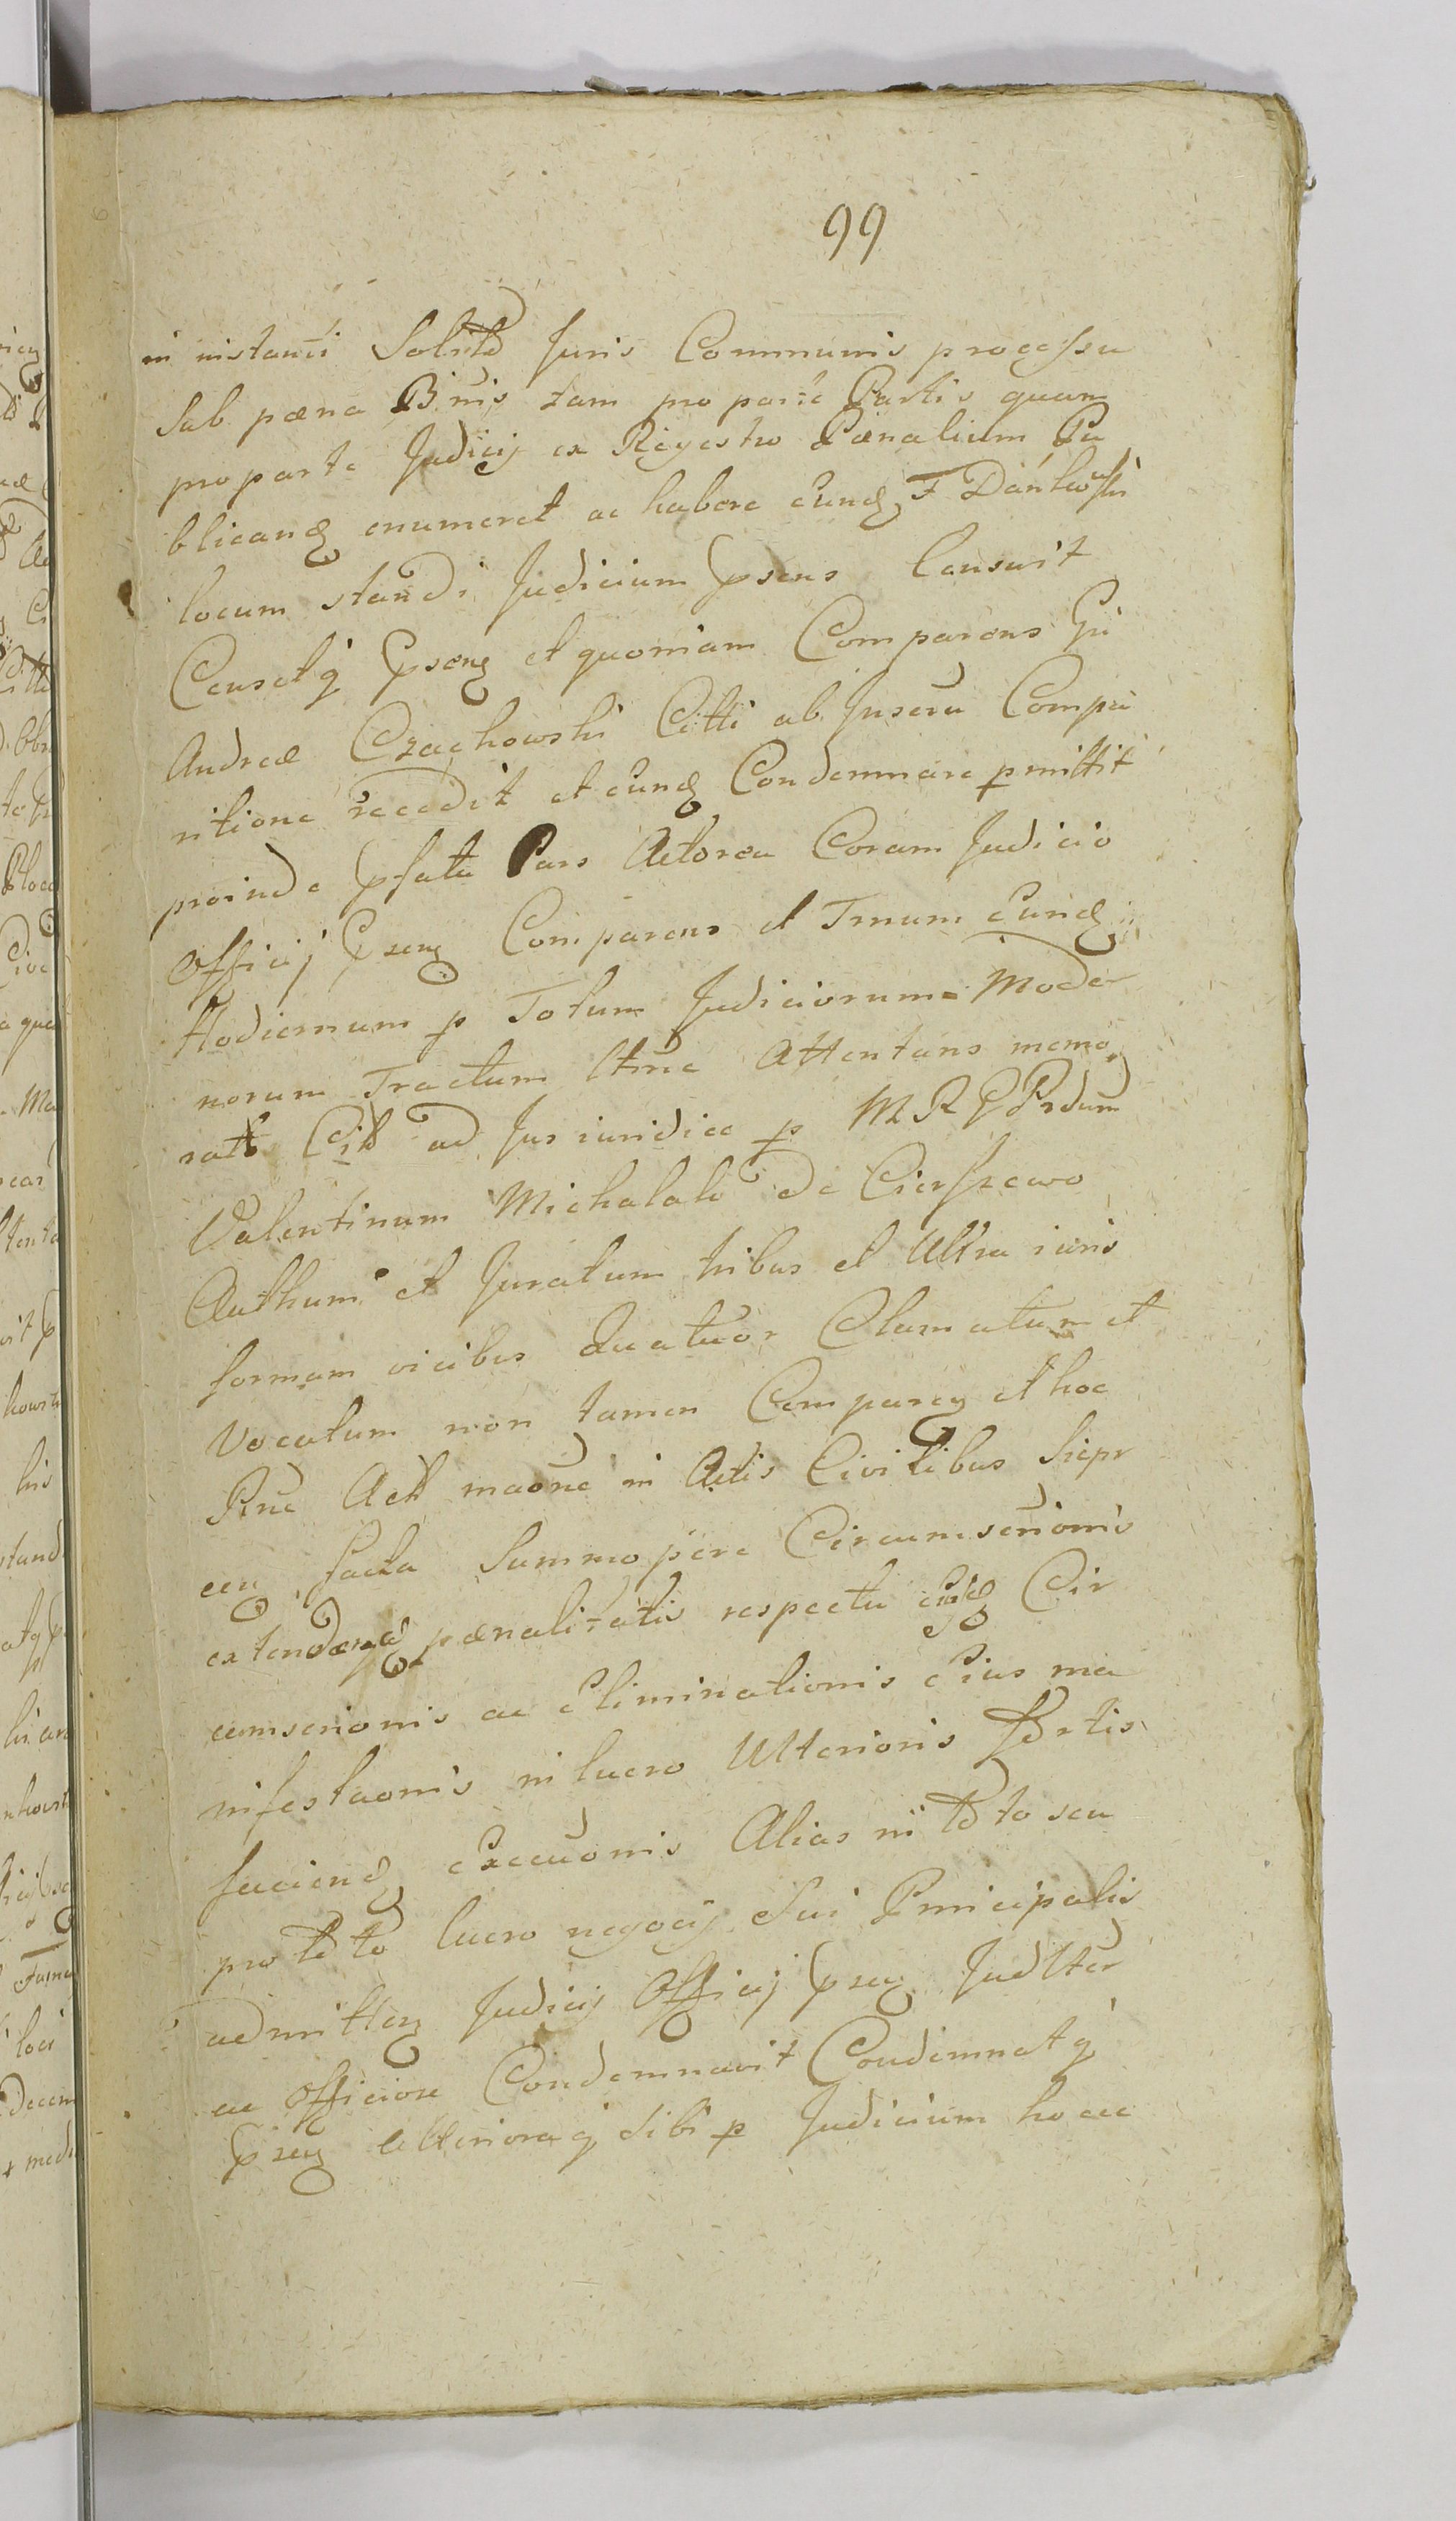 99
in instanti Solitto Juris Communis processu
Sub pæna Bañis tam pro parte Partis quam
pro parte Judicij ex Regestro Pænalium Pu
blicand enumeret ac habere eund F Dankowski
locum standi Judicium psens Censuit
Censetq psenz et quoniam Comparens Gñi
Andreæ Czachowski Citti ab Inseru Compa
ritione recedit et eund Condemnare pmittit
proinde pfata Pars Actorea Coram Judicio
Officij psenz Comparens et Trnum Eund
Hodiernum p Totum Judiciorum Moder
norum Tractum ltme Attentans memo
ratt Citt ad Jus iuridice p M R G Prdum
Valentinum Michalak de Cierszewo
Authum et Juratum tribus et Ultra iuris
formam vicibus Quatuor Clamatum et
Vocatum non tamen Comparenz et hoc
Rne Actt maõne in Actis Civilibus Siepr
cenz facta Summopere Circumscrionis
extendend pænalitatis respectu ejusd Cir
cumscrionis ac Eliminationis Eius ma
nifestaonis in lucro Ulterioris fortis
faciend Execuõnis Alias in toto seu
pro toto lucro negocij Sui Principalis
admittenz Judicij Officij psenz Judlter
ac Officiose Condemnavit Condemnatq
psenz Ulterioraq Sibi p Judicium hocce